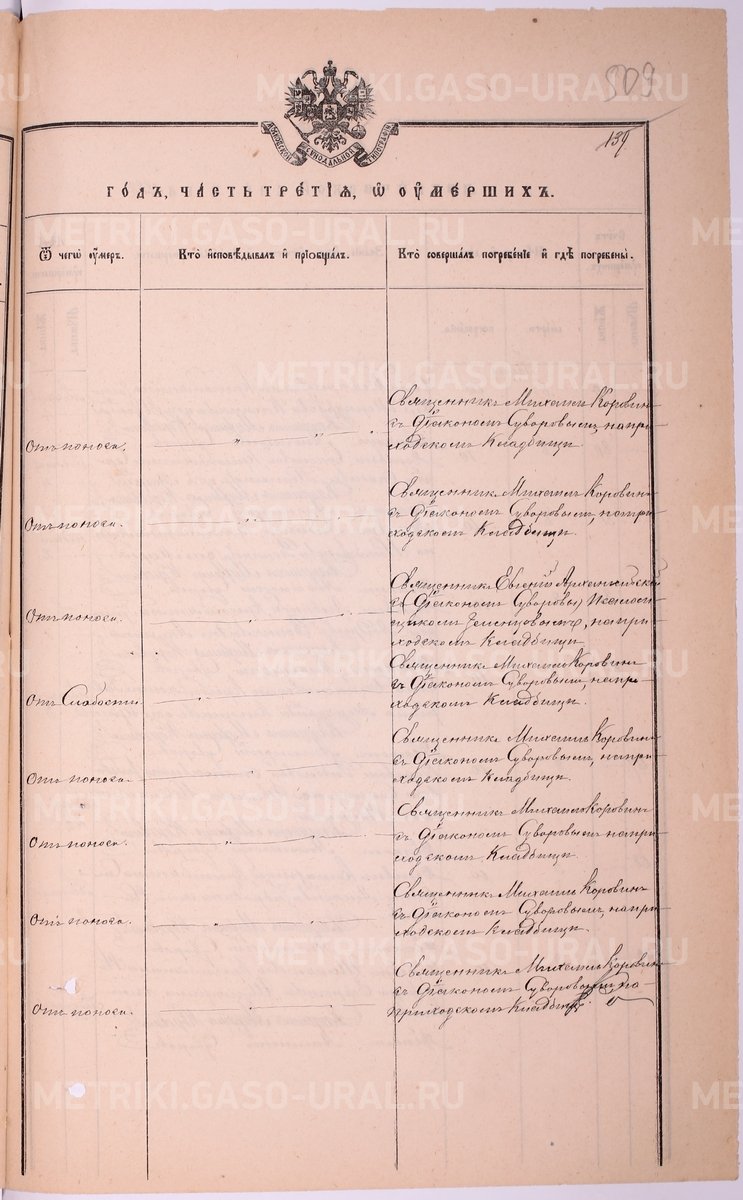 METRIKI.GASO-URAL.RU
509
139
МОСКОВСКОЙ СѴНОДАЛЬНОЙ ТИПОГРАФІИ
ГОДЪ, ЧАСТЬ ТРЕТІЯ, Ѡ ОУМЕРШИХЪ.
Ѿ чегѡ оумеръ.
Кто исповѣдывалъ и пріобщалъ.
Кто совершалъ погребеніе и гдѣ погребены.
Отъ поноса.
Священникъ Михаилъ Коровинъ
съ Діакономъ Суворовымъ, на при
ходскомъ Кладбищи.
Отъ поноса.
Священникъ Михаилъ Коровинъ
съ Діакономъ Суворовымъ, на при
ходскомъ Кладбищи.
Отъ поноса.
Священникъ Евгеній Архангельской
съ Діакономъ Суворовы
на при
ходскомъ Кладбищи.
Отъ Слабости
Священникъ Михаилъ Коровинъ
съ Діакономъ Суворовымъ, на при
ходскомъ Кладбищи.
Отъ поноса.
Священникъ Михаилъ Коровинъ
съ Діакономъ Суворовымъ, на при
ходскомъ Кладбищи.
Отъ поноса.
Священникъ Михаилъ Коровинъ
съ Діакономъ Суворовымъ на при
ходскомъ Кладбищи.
Отъ поноса.
Священникъ Михаилъ Коровинъ
съ Діакономъ Суворовымъ, на при
ходскомъ Кладбищи.
Отъ поноса.
Священникъ Михаилъ Коровинъ
съ Діакономъ Суворовымъ на
приходскомъ Кладбищи.